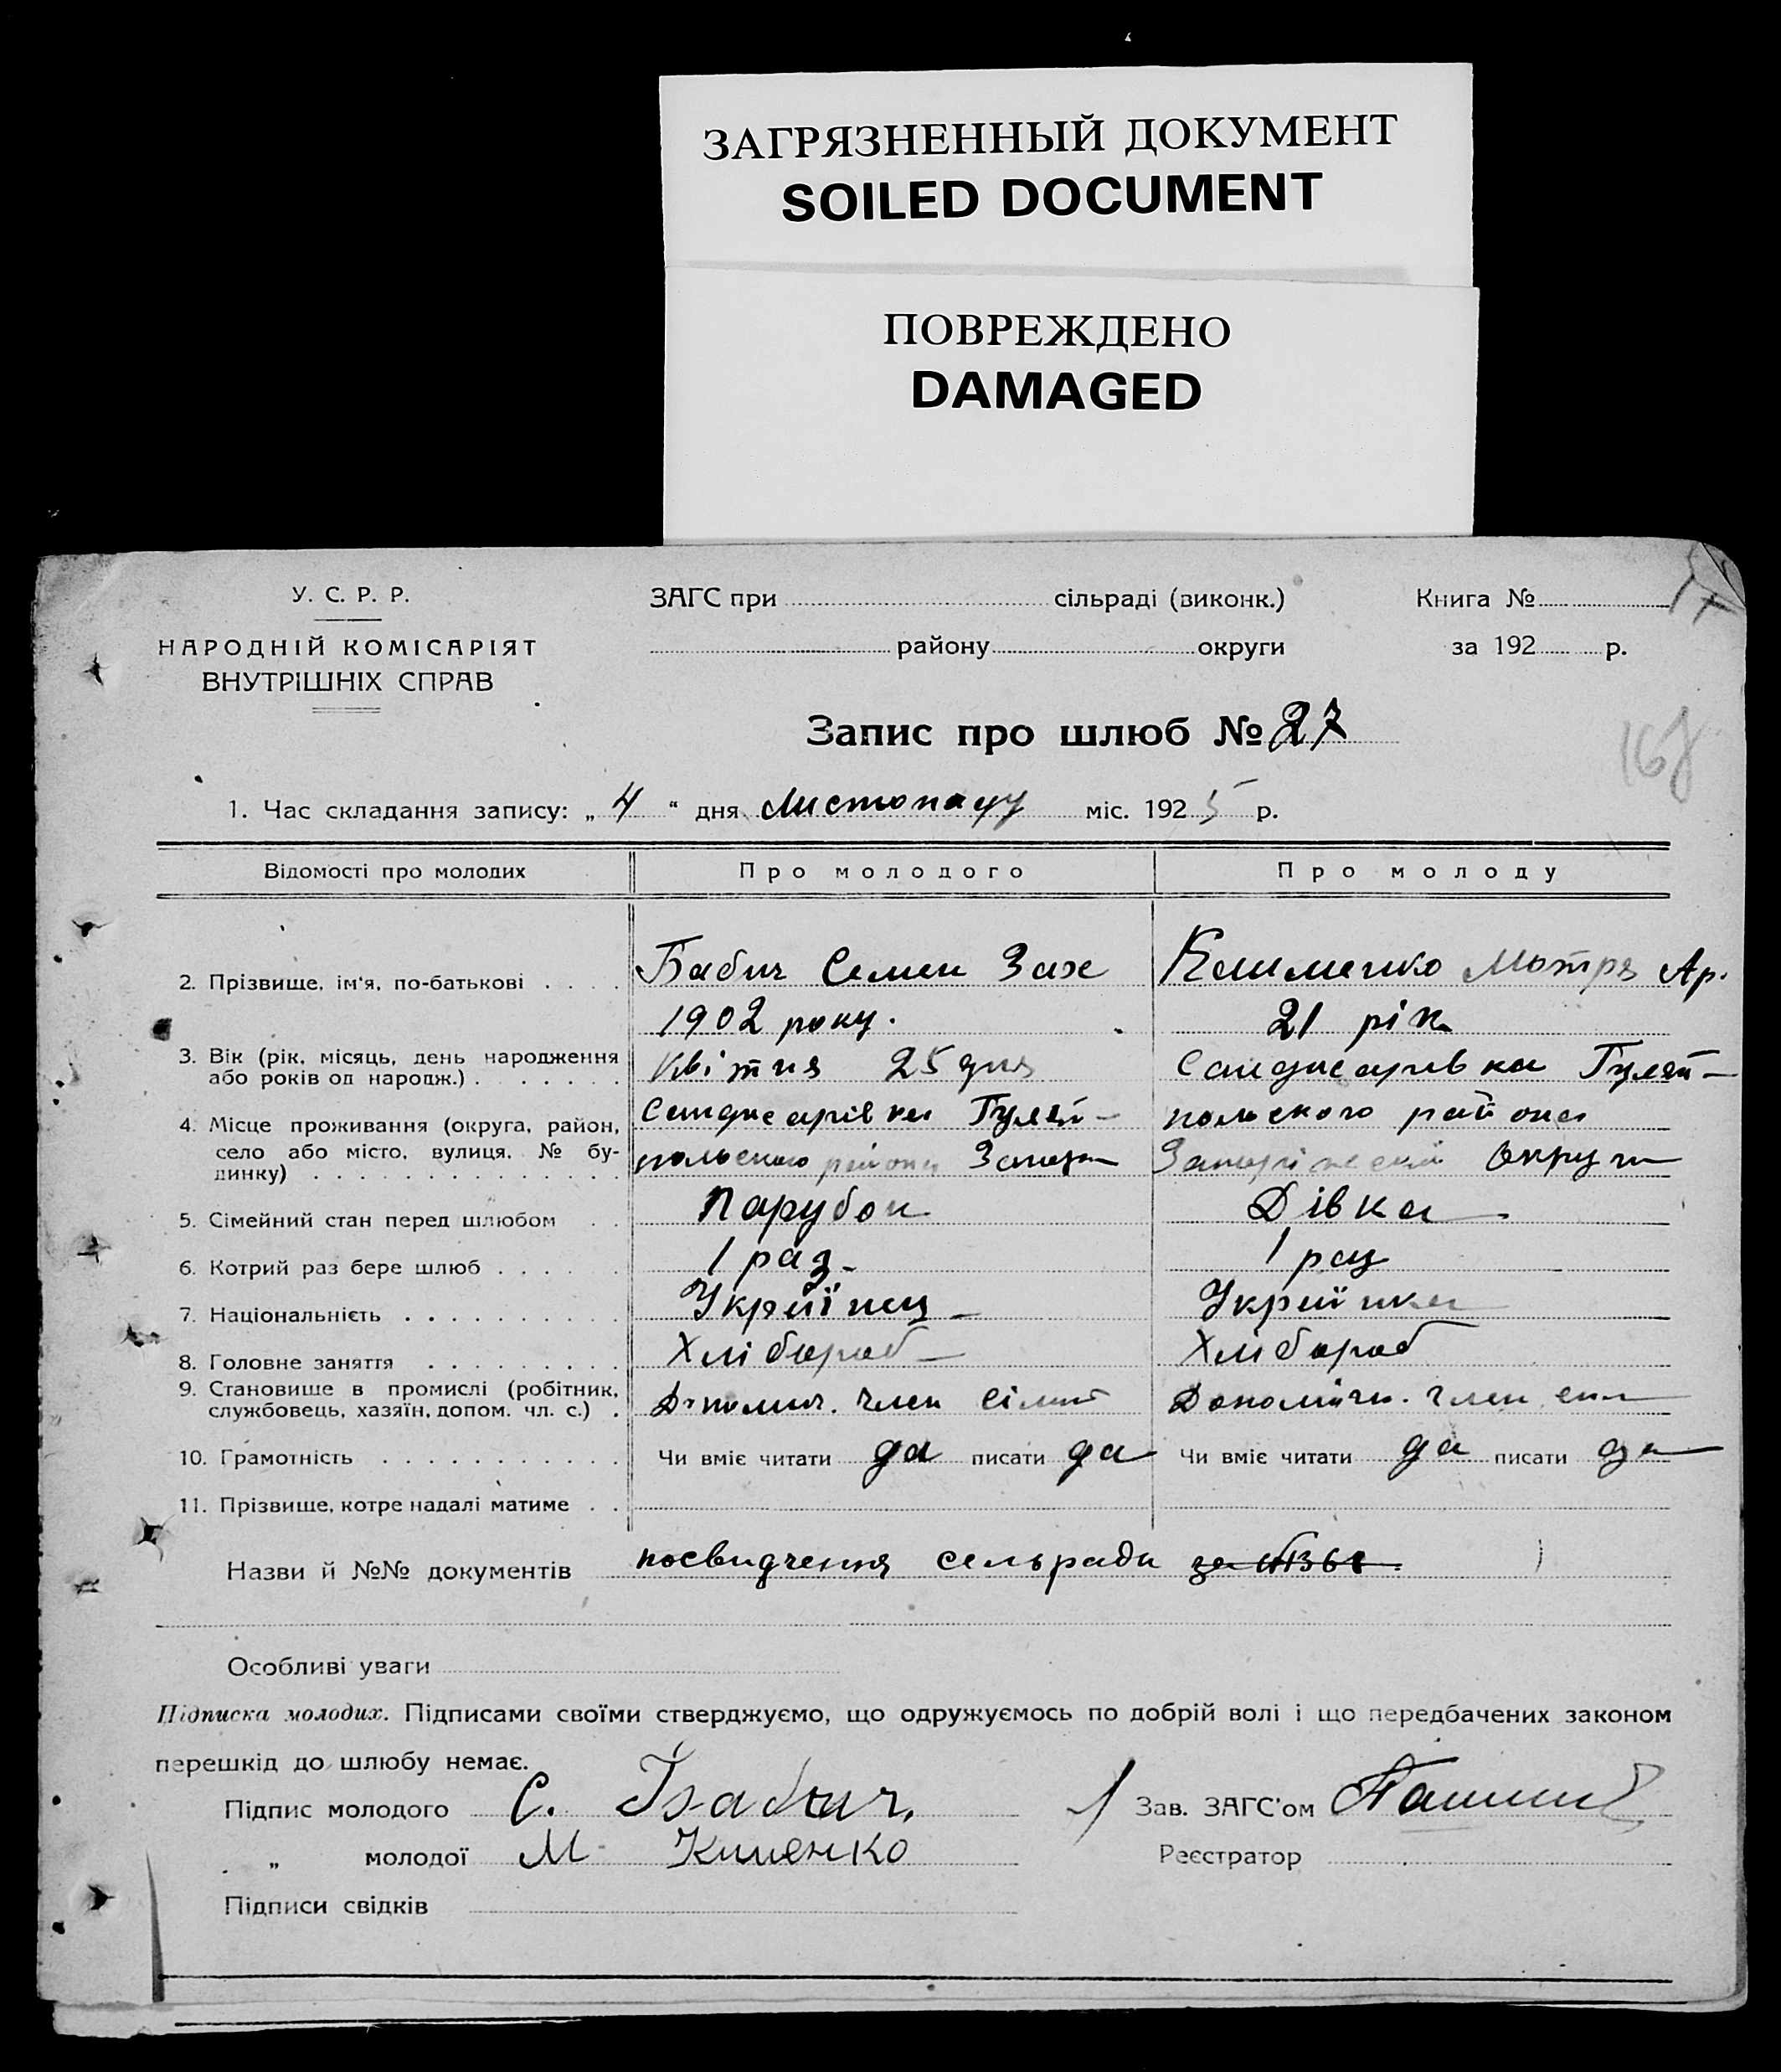 ЗАГРЯЗНЕННЫЙ ДОКУМЕНТ
SOILED DOCUMENT
ПОВРЕЖДЕНО
DAMAGED
У. С. Р. Р.
НАРОДНІЙ КОМІСАРІЯТ
ВНУТРІШНІХ СПРАВ
ЗАГС при сільраді (виконк.)
району округи
Книга № 17
за 192 р.
Запис про шлюб № 27
1. Час складання запису: „ 4 “ дня Листопаду міс. 192 5 р.
Відомості про молодих Про молодого Про молоду
2. Прізвище, ім'я, по-батькові . . . . Бабич Семен Зах Клименко Мотря Ар.
1902 року. 21 рік
3. Вік (рік, місяць, день народження Квітня 25 дня Санджарівка Гуляй-
або років од народж.) . . . . . . .
4. Місце проживання (округа, район, Санджарівка Гуляй- польского района
село або місто, вулиця, № бу- польского района Запор Запоріжской Округи
динку) . . . . . . . . . . . . . .
5. Сімейний стан перед шлюбом . . Парубок Дівка
6. Котрий раз бере шлюб . . . . . 1 раз 1 раз
7. Національність . . . . . . . . . Українец Українка
8. Головне заняття . . . . . . . . . Хлібороб Хлібороб
9. Становище в промислі (робітник,
службовець, хазяїн, допом. чл. с.) . Допомич. член сімї Допомічн. член
10. Грамотність . . . . . . . . . . . Чи вміє читати да писати да Чи вміє читати да писати да
11. Прізвище, котре надалі матиме . .
Назви й №№ документів посвидчення сельради за №1368
Особливі уваги
Підписка молодих. Підписами своїми стверджуємо, що одружуємось по добрій волі і що передбачених законом
перешкід до шлюбу немає.
Підпис молодого С. Бабич. Зав. ЗАГС'ом
„ молодої М Клименко Реєстратор
Підписи свідків